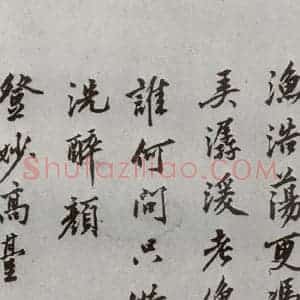 漁浩蕩更
潺湲老
誰何問只
洗醉顏
登妙高臺
Shufaziliao.com